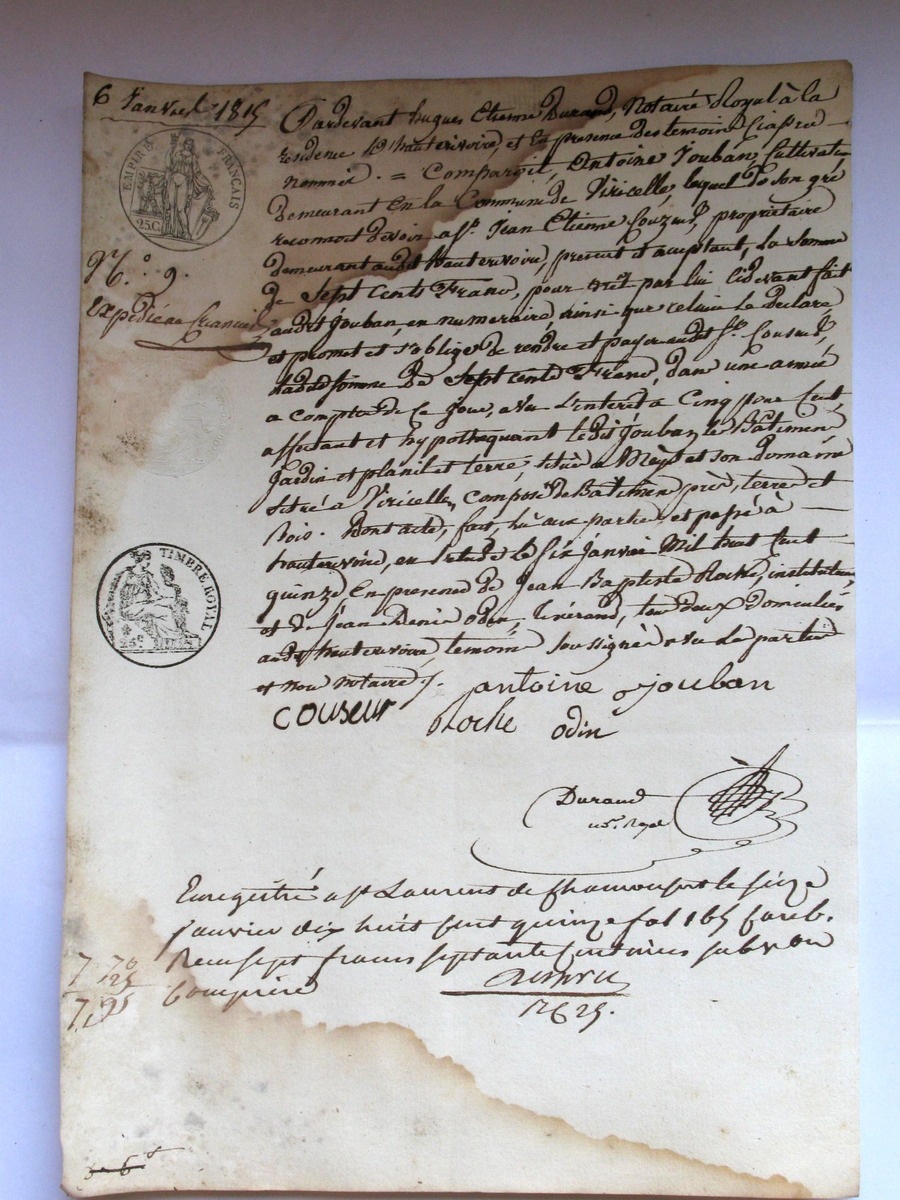 6 Janvier 1815
EMPIRE FRANÇAIS
25.C
N.° 9.
expédié au Créancier
Pardevant hugues Etienne Durand, Notaire Royal à la
residence d'hauterivoire, et en presence des temoins Ciaprés
nommés. = Comparoit, Antoine Jouban, Cultivateur
demeurant en la Commune de Viricelle, lequel de son gré
reconnoit devoir a Sr. Jean Etienne Couzeur, propriétaire
demeurant audit hauterivoire, présent et acceptant, la somme
de Sept Cents Franc, pour prêt par lui cidevant fait
audit Jouban, en numeraire, ainsi que celui le declare,
et promet et s'oblige de rendre et payer audit Sr. Couseur,
ladite somme de Sept Cents Franc, dans une année
a compter de ce jour, avec l'interêt a Cinq pour Cent
affectant et hypothequant ledit Jouban, le Bâtiment
Jardin et et terre, situés a Meys et son Domaine
situé a Viricelle, composé de Batimens, près, terres et
bois. Dont acte, fait, lû aux parties et passé à
hauterivoire, en l'etude le six janvier Mil huit Cent
quinze En presence de Jean Baptiste Roche, instituteur
et de Jean Denis Odin, tisserand, tous deux Domiciliés
audit hauterivoire temoins soussignés avec les parties
et nou notaire ./.
antoine jouban
couseur
Roche
odin
TIMBRE ROYAL
25c
Durand
no.re Royal
Enregistré a St Laurent de Chamousset le seize
janvier dix huit cent quinze fol 165
Recu sept francs septante Centimes subv.on
Comprise
7 70
25
7.95